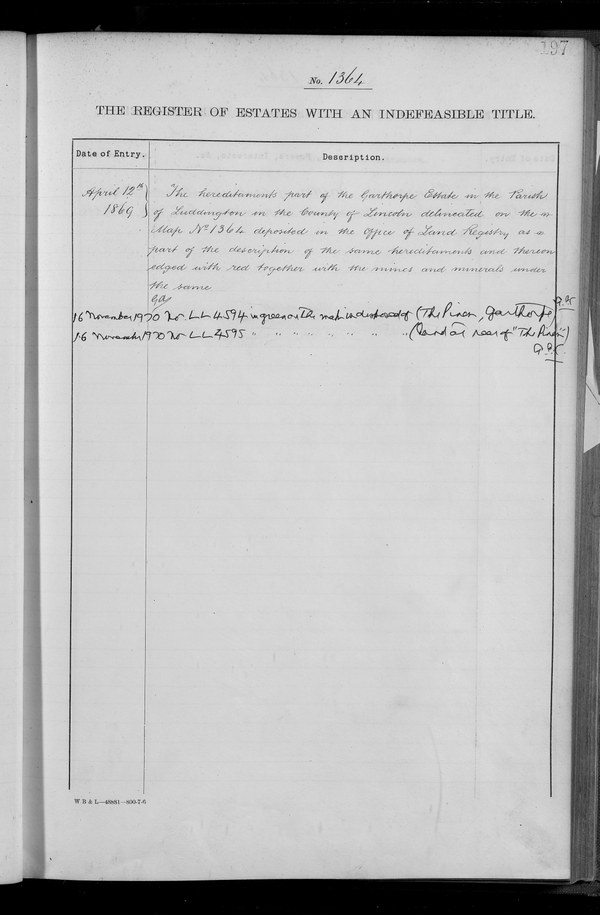 197
No. 1364
THE REGISTER OF ESTATES WITH AN INDEFEASIBLE TITLE.
Date of Entry. Description.
April 12th The hereditaments part of the Garthorpe Estate in the Parish
1869 of Luddington in the County of Lincoln delineated on the
Map No 1364 deposited in the Office of Land Registry as a
part of the description of the same hereditaments and thereon
edged with red together with the mines and minerals under
the same
16 November 1970 No. LL 4594 in green on the map (The Pines, Garthorpe)
16 November 1970 No LL 4595 " " " " " " " " (land at rear of "The Pines")
W.B & L.—48881—800-7-6.